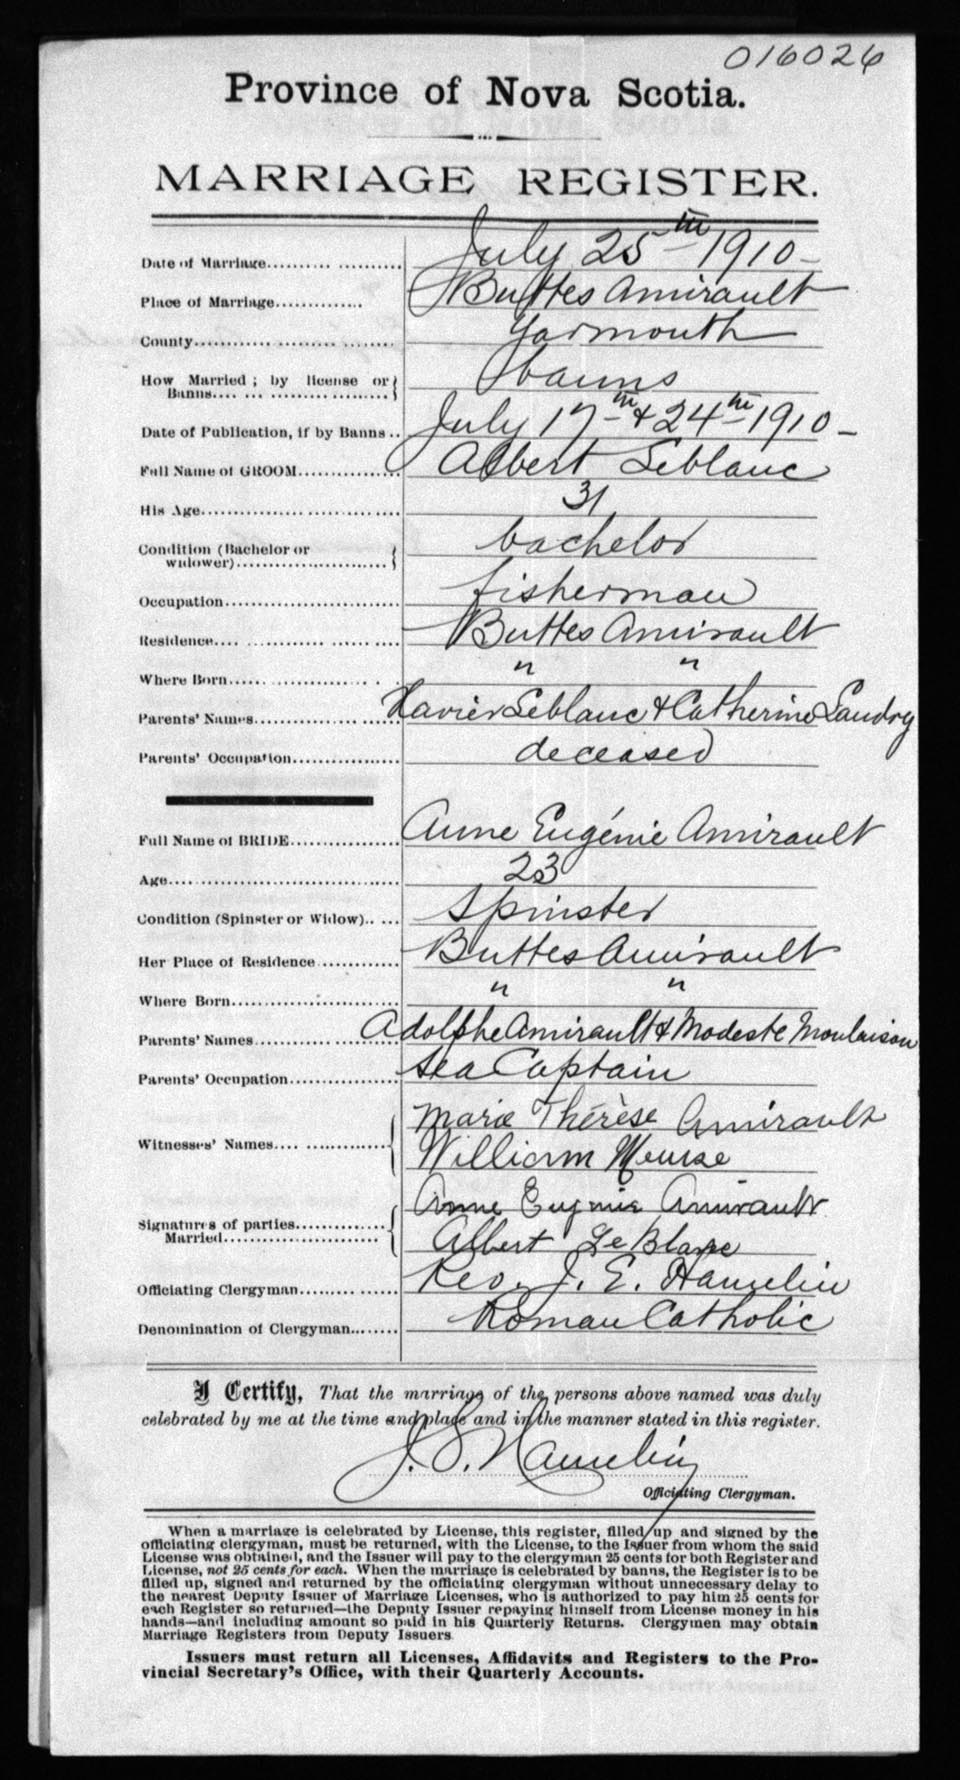 016026
Province of Nova Scotia.
MARRIAGE REGISTER.
Date of Marriage.......... .......... July 25th 1910 -
Place of Marriage.............. Buttes Amirault
County.......... .......... ........ Yarmouth
How Married ; by license or
Banns.... ... .......... .......... banns
Date of Publication, if by Banns .. July 17th & 24th 1910 -
Full Name of GROOM............... Albert Leblanc
His Age.......... .......... .......... 31
Condition (Bachelor or
widower)........................ bachelor
Occupation........................ fisherman
Residence.... .................... Buttes Amirault
Where Born...... ............... " "
Parents' Names.................... Xavier Leblanc & Catherine Landry
Parents' Occupation............... deceased
Full Name of BRIDE................ Anne Eugénie Amirault
Age.................................. 23
Condition (Spinster or Widow).. ... Spinster
Her Place of Residence............ Buttes Amirault
Where Born........................ " "
Parents' Names.................... Adolphe Amirault & Modeste Moulaison
Parents' Occupation............... Sea Captain
Marie Thérèse Amirault
Witnesses' Names.... .............. William Meuse
Anne Eugenie Amirault
Signatures of parties..............
Married........................ Albert LeBlanc
Officiating Clergyman.............. Rev. J. E. Hamelin
Denomination of Clergyman........ Roman Catholic
I Certify, That the marriage of the persons above named was duly
celebrated by me at the time and place and in the manner stated in this register.
J. E. Hamelin
Officiating Clergyman.
When a marriage is celebrated by License, this register, filled up and signed by the
officiating clergyman, must be returned, with the License, to the Issuer from whom the said
License was obtained, and the Issuer will pay to the clergyman 25 cents for both Register and
License, not 25 cents for each. When the marriage is celebrated by banns, the Register is to be
filled up, signed and returned by the officiating clergyman without unnecessary delay to
the nearest Deputy Issuer of Marriage Licenses, who is authorized to pay him 25 cents for
each Register so returned—the Deputy Issuer repaying himself from License money in his
hands—and including amount so paid in his Quarterly Returns. Clergymen may obtain
Marriage Registers from Deputy Issuers
Issuers must return all Licenses, Affidavits and Registers to the Pro-
vincial Secretary's Office, with their Quarterly Accounts.